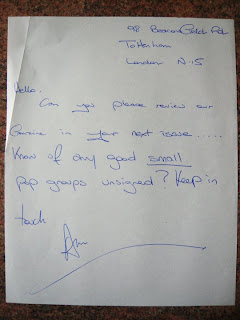 98 Beaconsfield Rd
Tottenham
London N.15
Hello,
Can you please review our
in your next issue.....
Know of any good small
pop groups unsigned? Keep in
touch